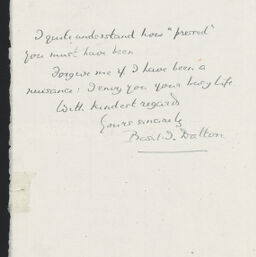 I quite understand how "pressed"
you must have been
Forgive me if I have been a
nuisance: I envy you your busy life
With kindest regards
Yours sincerely
Basil I. Dalton